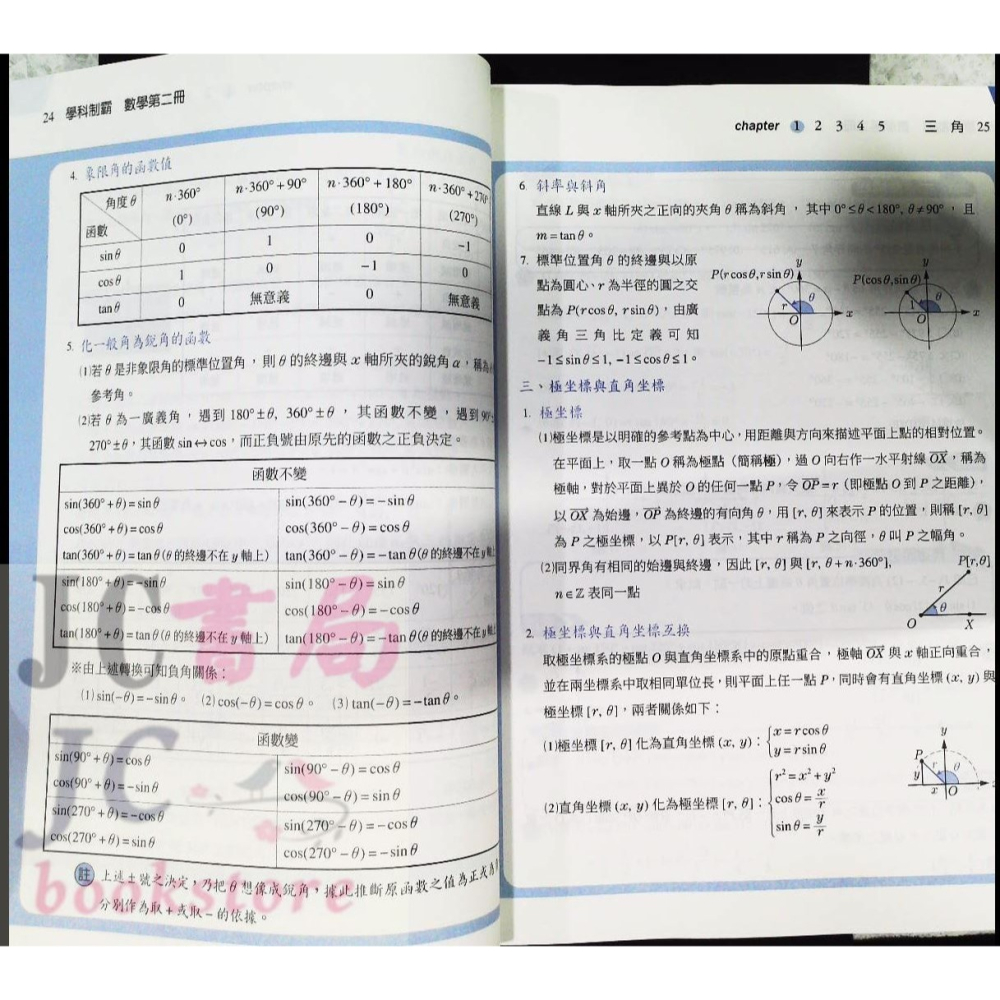 24 學科制霸 數學第二冊
4. 象限角的函數值
角度θ n·360° n·360°+90° n·360°+180° n·360°+270°
函數 (0°) (90°) (180°) (270°)
sinθ 0 1 0 −1
cosθ 1 0 −1 0
tanθ 0 無意義 0 無意義
5. 化一般角為銳角的函數
(1)若 θ 是非象限角的標準位置角，則 θ 的終邊與 x 軸所夾的銳角 α，稱為
參考角。
(2)若 θ 為一廣義角，遇到 180°±θ, 360°±θ，其函數不變，遇到 90°
270°±θ，其函數 sin↔cos，而正負號由原先的函數之正負決定。
函數不變
sin(360°+θ)=sinθ sin(360°−θ)=−sinθ
cos(360°+θ)=cosθ cos(360°−θ)=cosθ
tan(360°+θ)=tanθ(θ的終邊不在y軸上) tan(360°−θ)=−tanθ(θ的終邊不在y軸
sin(180°+θ)=−sinθ sin(180°−θ)=sinθ
cos(180°+θ)=−cosθ cos(180°−θ)=−cosθ
tan(180°+θ)=tanθ(θ的終邊不在y軸上) tan(180°−θ)=−tanθ(θ的終邊不在y軸
※由上述轉換可知負角關係：
(1) sin(−θ)=−sinθ。 (2) cos(−θ)=cosθ。 (3) tan(−θ)=−tanθ。
函數變
sin(90°+θ)=cosθ sin(90°−θ)=cosθ
cos(90°+θ)=−sinθ cos(90°−θ)=sinθ
sin(270°+θ)=−cosθ sin(270°−θ)=−cosθ
cos(270°+θ)=sinθ cos(270°−θ)=−sinθ
註 上述±號之決定，乃把θ想像成銳角，據此推斷原函數之值為正或為
分別作為取+或取−的依據。
JC書局
JC
bookstore
chapter 1 2 3 4 5 三角 25
6. 斜率與斜角
直線 L 與 x 軸所夾之正向的夾角 θ 稱為斜角，其中 0°≤θ<180°, θ≠90°，且
m=tanθ。
7. 標準位置角 θ 的終邊與以原
點為圓心、r 為半徑的圓之交
點為 P(rcosθ, rsinθ)，由廣
義角三角比定義可知
−1≤sinθ≤1, −1≤cosθ≤1。
P(rcosθ,rsinθ) y r θ O x
P(cosθ,sinθ) y 1 θ O x
三、極坐標與直角坐標
1. 極坐標
(1)極坐標是以明確的參考點為中心，用距離與方向來描述平面上點的相對位置。
在平面上，取一點 O 稱為極點（簡稱極），過 O 向右作一水平射線 OX，稱為
極軸，對於平面上異於 O 的任何一點 P，令 OP=r（即極點 O 到 P 之距離），
以 OX 為始邊，OP 為終邊的有向角 θ，用 [r, θ] 來表示 P 的位置，則稱 [r, θ]
為 P 之極坐標，以 P[r, θ] 表示，其中 r 稱為 P 之向徑，θ 叫 P 之幅角。
(2)同界角有相同的始邊與終邊，因此 [r, θ] 與 [r, θ+n·360°],
n∈ℤ 表同一點
P[r,θ] r θ O X
2. 極坐標與直角坐標互換
取極坐標系的極點 O 與直角坐標系中的原點重合，極軸 OX 與 x 軸正向重合，
並在兩坐標系中取相同單位長，則平面上任一點 P，同時會有直角坐標 (x, y) 與
極坐標 [r, θ]，兩者關係如下：
(1)極坐標 [r, θ] 化為直角坐標 (x, y)：{x=rcosθ
y=rsinθ
(2)直角坐標 (x, y) 化為極坐標 [r, θ]：{r²=x²+y²
cosθ=x/r
sinθ=y/r
y P r θ y x O